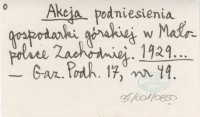 Akcja podniesienia
gospodarki górskiej w Mało-
polsce Zachodniej. 1929...
— Gaz. Podh. 17, nr 49.